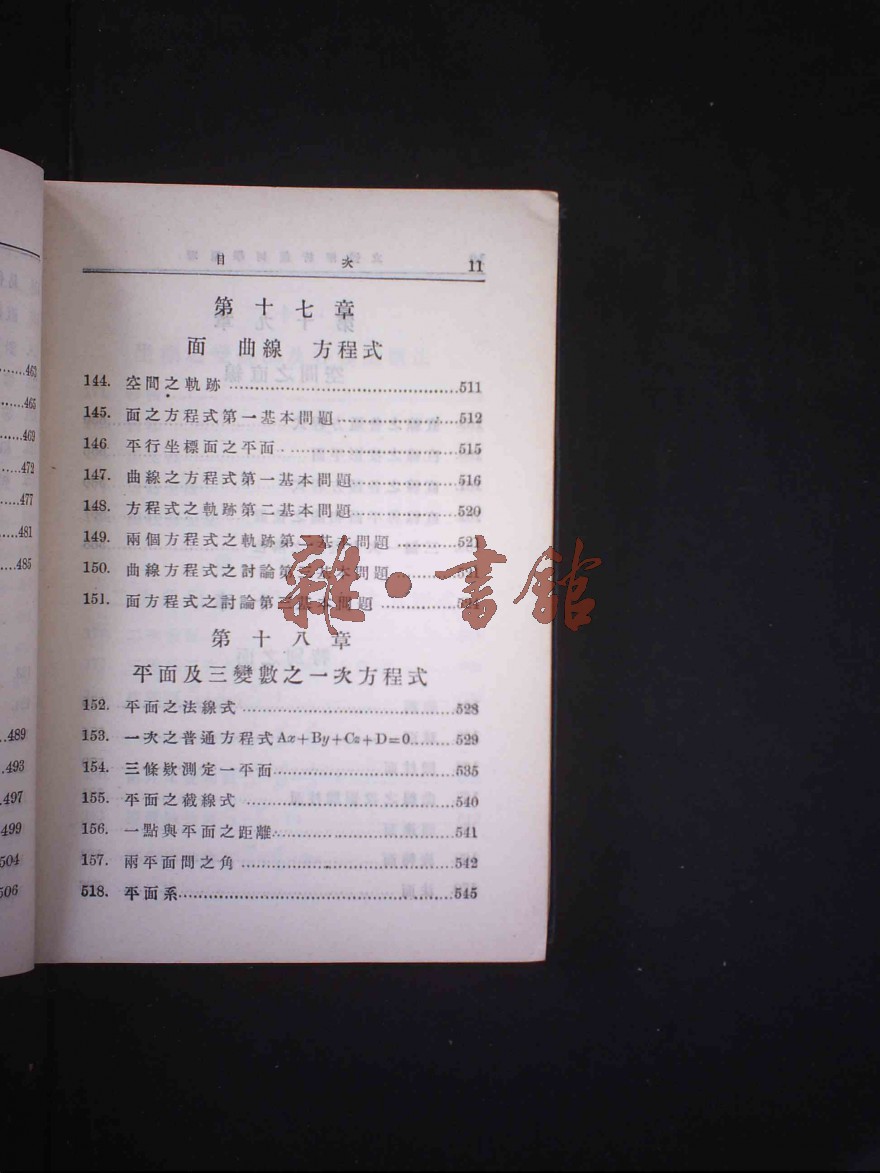 463
465
469
472
477
481
485
489
493
497
499
504
506
目 次 11
第十七章
面 曲線 方程式
144. 空間之軌跡 511
145. 面之方程式第一基本問題 512
146 平行坐標面之平面 515
147. 曲線之方程式第一基本問題 516
148. 方程式之軌跡第二基本問題 520
149. 兩個方程式之軌跡第二基本問題 521
150. 曲線方程式之討論第三基本問題 521
151. 面方程式之討論第三基本問題 524
第十八章
平面及三變數之一次方程式
152. 平面之法線式 528
153. 一次之普通方程式Ax+By+Cz+D=0 529
154. 三條欵測定一平面 535
155. 平面之截線式 540
156. 一點與平面之距離 541
157. 兩平面間之角 542
518. 平面系 545
雜·書館